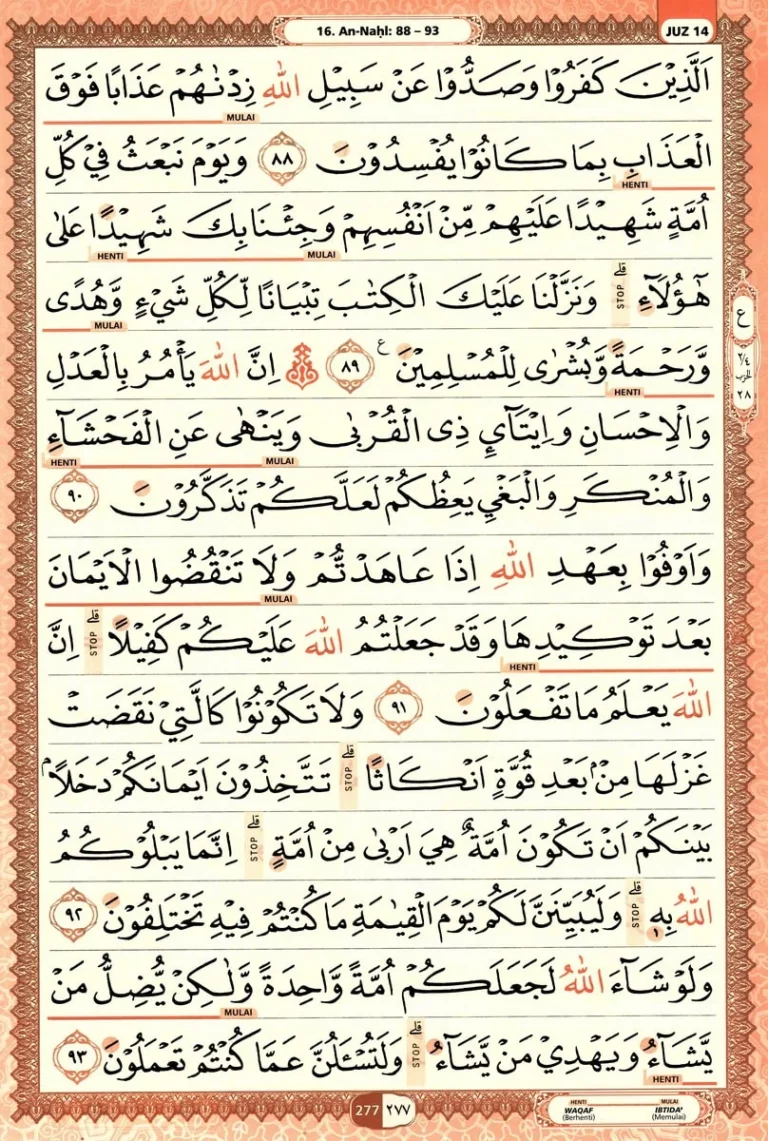 16. An-Naḥl: 88 – 93
JUZ 14
الَّذِيْنَ كَفَرُوْا وَصَدُّوْا عَنْ سَبِيْلِ اللّٰهِ زِدْنٰهُمْ عَذَابًا فَوْقَ
MULAI
الْعَذَابِ بِمَا كَانُوْا يُفْسِدُوْنَ ٨٨ وَيَوْمَ نَبْعَثُ فِيْ كُلِّ
HENTI
اُمَّةٍ شَهِيْدًا عَلَيْهِمْ مِّنْ اَنْفُسِهِمْ وَجِئْنَا بِكَ شَهِيْدًا عَلٰى
MULAI HENTI
هٰٓؤُلَاۤءِ ۗ STOP وَنَزَّلْنَا عَلَيْكَ الْكِتٰبَ تِبْيَانًا لِّكُلِّ شَيْءٍ وَّهُدًى
MULAI
وَّرَحْمَةً وَّبُشْرٰى لِلْمُسْلِمِيْنَ ࣖ ٨٩ ۞ اِنَّ اللّٰهَ يَأْمُرُ بِالْعَدْلِ
HENTI
وَالْاِحْسَانِ وَاِيْتَاۤئِ ذِى الْقُرْبٰى وَيَنْهٰى عَنِ الْفَحْشَاۤءِ
MULAI HENTI
وَالْمُنْكَرِ وَالْبَغْيِ يَعِظُكُمْ لَعَلَّكُمْ تَذَكَّرُوْنَ ٩٠
وَاَوْفُوْا بِعَهْدِ اللّٰهِ اِذَا عَاهَدْتُّمْ وَلَا تَنْقُضُوا الْاَيْمَانَ
MULAI
بَعْدَ تَوْكِيْدِهَا وَقَدْ جَعَلْتُمُ اللّٰهَ عَلَيْكُمْ كَفِيْلًا ۗ STOP اِنَّ
HENTI
اللّٰهَ يَعْلَمُ مَا تَفْعَلُوْنَ ٩١ وَلَا تَكُوْنُوْا كَالَّتِيْ نَقَضَتْ
غَزْلَهَا مِنْۢ بَعْدِ قُوَّةٍ اَنْكَاثًا ۗ STOP تَتَّخِذُوْنَ اَيْمَانَكُمْ دَخَلًا ۢ
بَيْنَكُمْ اَنْ تَكُوْنَ اُمَّةٌ هِيَ اَرْبٰى مِنْ اُمَّةٍ ۗ STOP اِنَّمَا يَبْلُوْكُمُ
اللّٰهُ بِهٖ ۗ STOP وَلَيُبَيِّنَنَّ لَكُمْ يَوْمَ الْقِيٰمَةِ مَا كُنْتُمْ فِيْهِ تَخْتَلِفُوْنَ ٩٢
وَلَوْ شَاۤءَ اللّٰهُ لَجَعَلَكُمْ اُمَّةً وَّاحِدَةً وَّلٰكِنْ يُّضِلُّ مَنْ
MULAI
يَّشَاۤءُ وَيَهْدِيْ مَنْ يَّشَاۤءُ ۗ STOP وَلَتُسْـَٔلُنَّ عَمَّا كُنْتُمْ تَعْمَلُوْنَ ٩٣
HENTI
ع
٢/٤
الحزب
٢٨
277 ٢٧٧
HENTI MULAI
WAQAF IBTIDA'
(Berhenti) (Memulai)